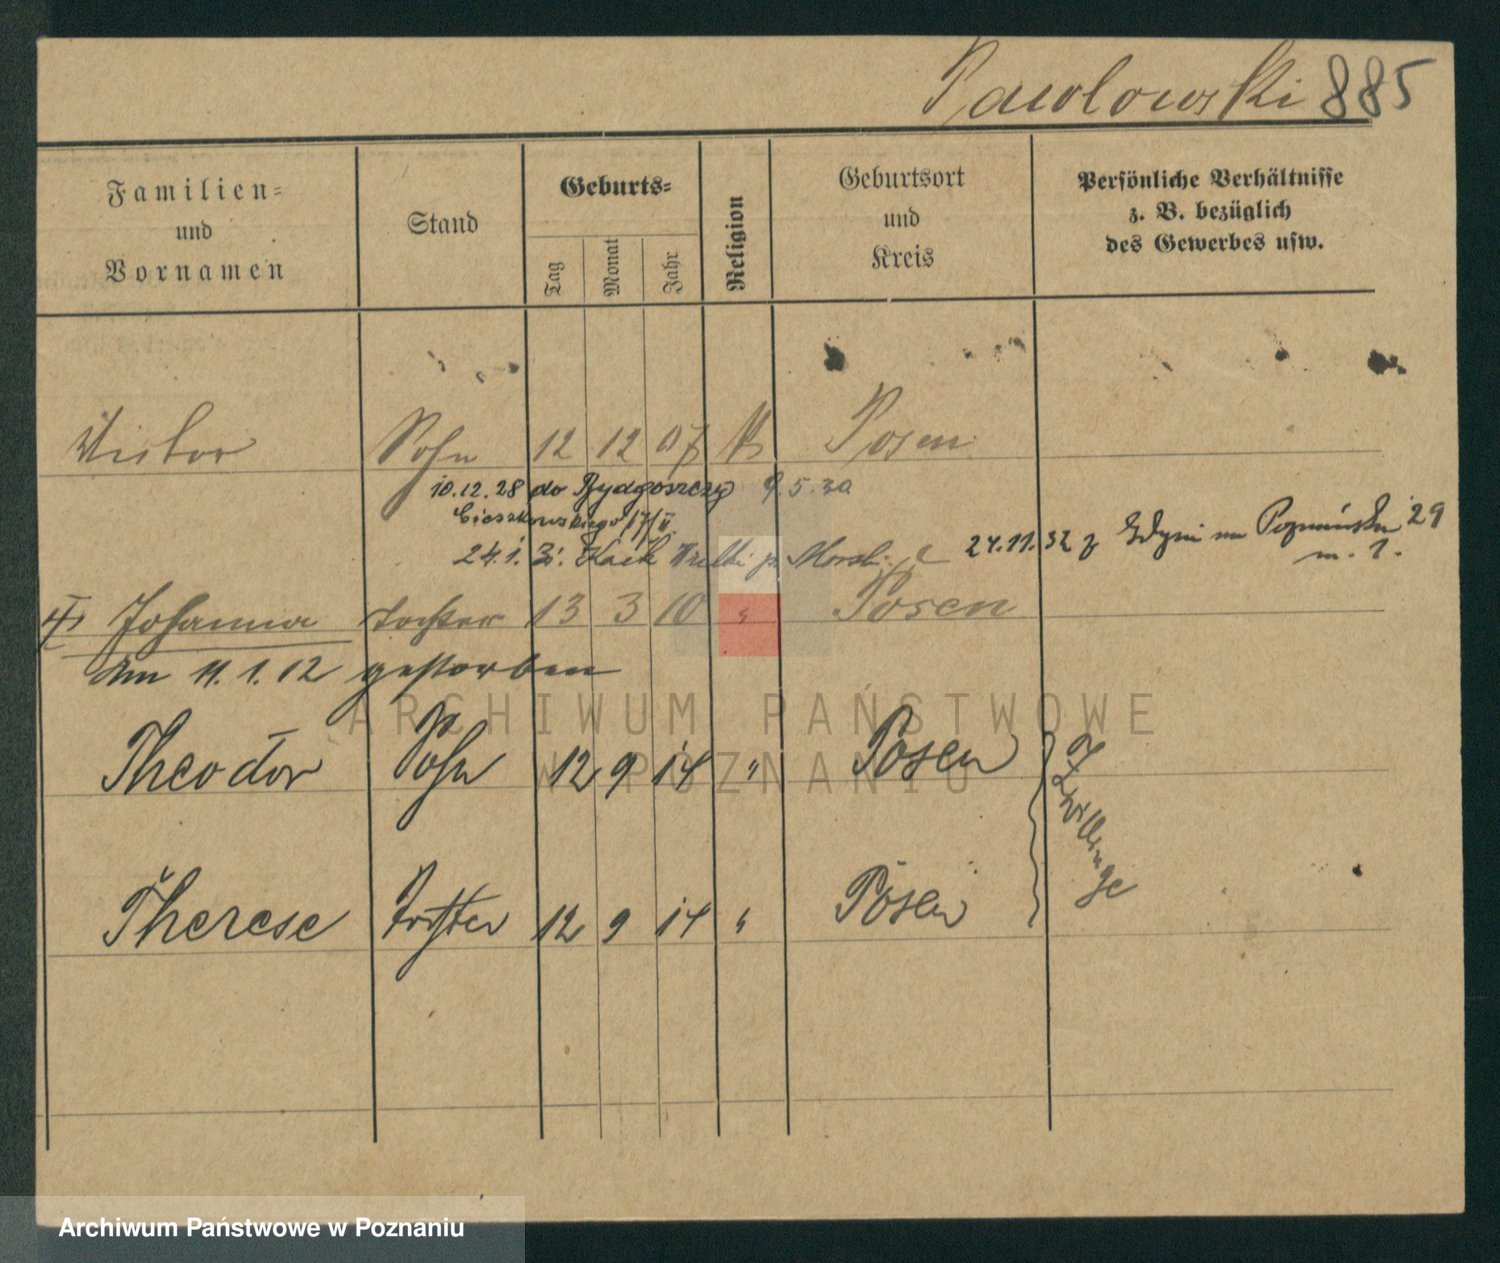 Pawlowski 885
Familien=
und
Vornamen
Stand
Geburts=
Tag
Monat
Jahr
Religion
Geburtsort
und
Kreis
Persönliche Verhältnisse
z. B. bezüglich
des Gewerbes usw.
Victor Sohn 12 12 07 K Posen
10.12.28 do Bydgoszczy 9.5.30
Cieszkowskiego 17/II
24.1. 3 Kack p. Morsk. 24.11.32 z Gdyni 29
m. 1.
Johanna Tochter 13 3 10 " Posen
Am 11.1.12 gestorben
Theodor Sohn 12 9 14 " Posen
Zwillinge
Therese Tochter 12 9 14 " Posen
ARCHIWUM PAŃSTWOWE
W POZNANIU
Archiwum Państwowe w Poznaniu